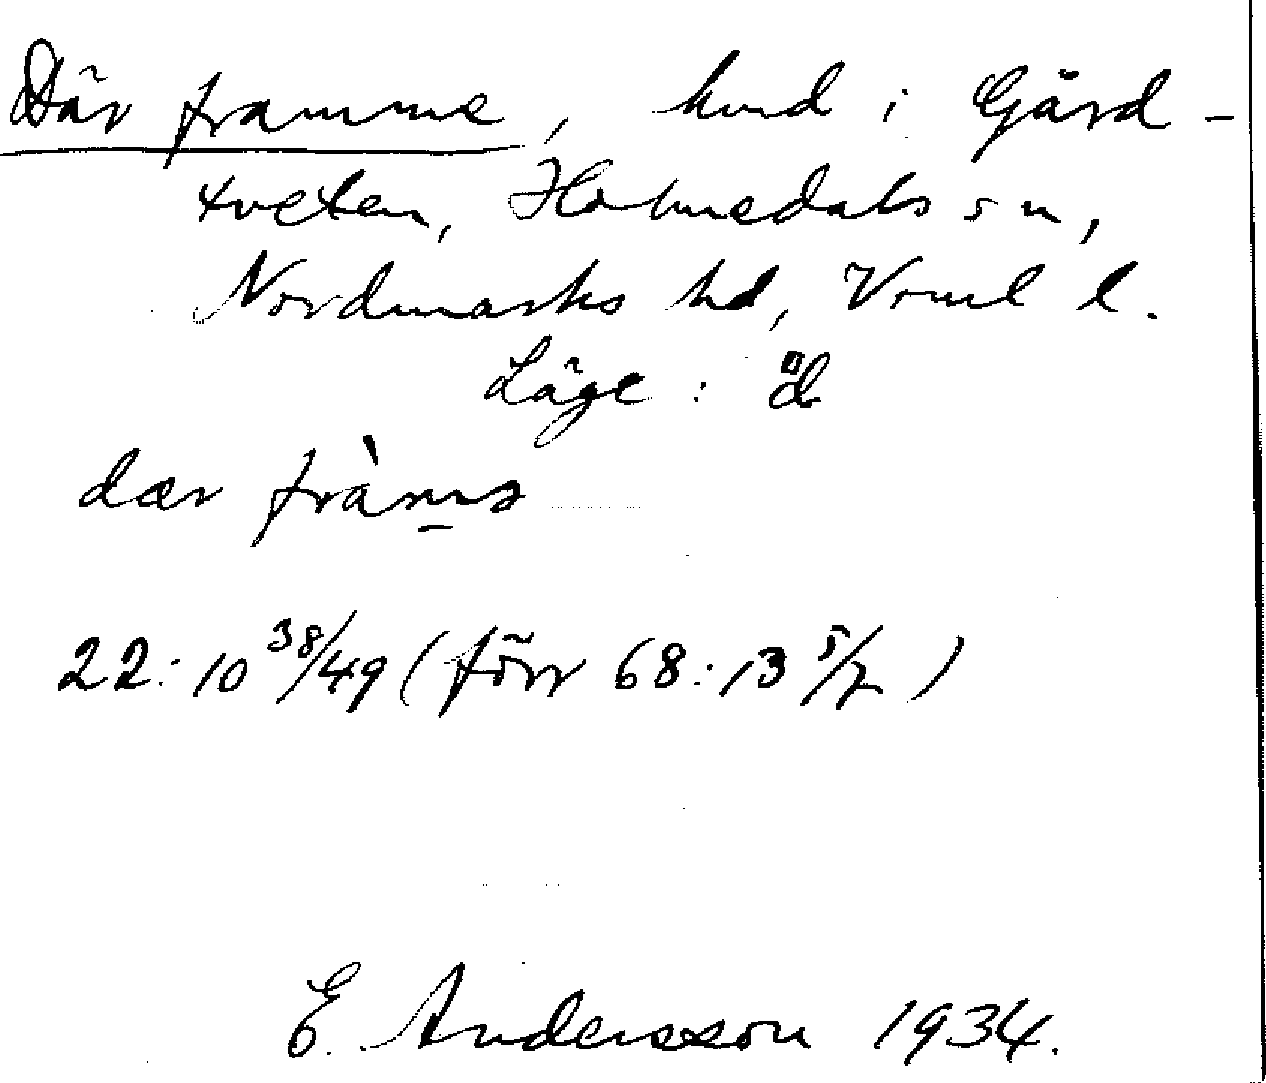 Där framme, hmd i Gård-
tveten, Holmedals sn,
Nordmarks hd, Vrml l.
Läge:
dær fràmə
22:10 38/49 (förr 68:13 5/7)
E. Andersson 1934.